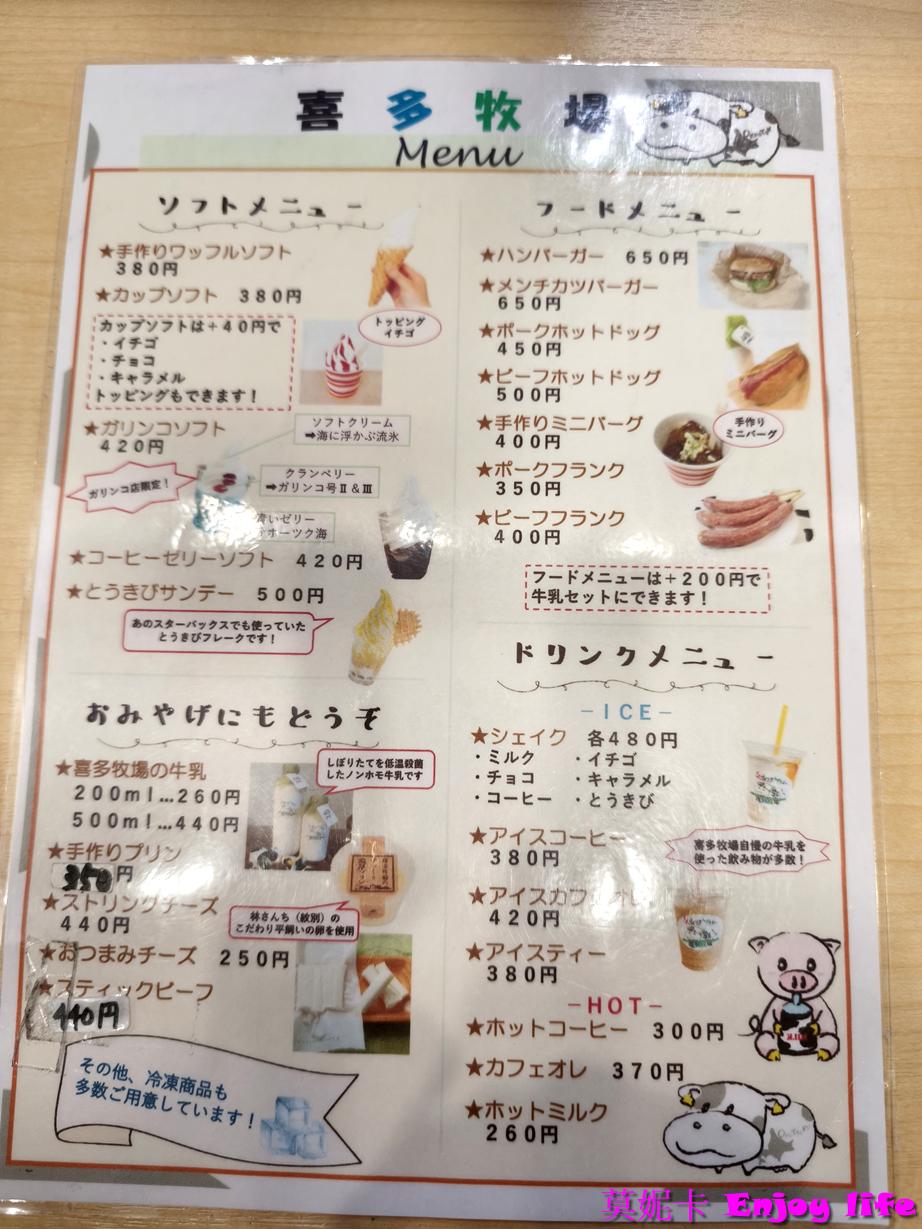 喜多牧場
Menu
ソフトメニュー
★手作りワッフルソフト
380円
★カップソフト 380円
カップソフトは+40円で
・イチゴ
・チョコ
・キャラメル
トッピングもできます！
トッピング
イチゴ
★ガリンコソフト
420円
ソフトクリーム
➡海に浮かぶ流氷
ガリンコ店限定！
クランベリー
➡ガリンコ号Ⅱ＆Ⅲ
青いゼリー
オホーツク海
★コーヒーゼリーソフト 420円
★とうきびサンデー 500円
あのスターバックスでも使っていた
とうきびフレークです！
おみやげにもどうぞ
★喜多牧場の牛乳
200ml…260円
500ml…440円
しぼりたてを低温殺菌
したノンホモ牛乳です
★手作りプリン
350円
★ストリングチーズ
440円
林さんち（紋別）の
こだわり平飼いの卵を使用
★おつまみチーズ 250円
★スティックビーフ
440円
その他、冷凍商品も
多数ご用意しています！
フードメニュー
★ハンバーガー 650円
★メンチカツバーガー
650円
★ポークホットドッグ
450円
★ビーフホットドッグ
500円
★手作りミニバーグ
400円
手作り
ミニバーグ
★ポークフランク
350円
★ビーフフランク
400円
フードメニューは+200円で
牛乳セットにできます！
ドリンクメニュー
-ICE-
★シェイク 各480円
・ミルク ・イチゴ
・チョコ ・キャラメル
・コーヒー ・とうきび
★アイスコーヒー
380円
喜多牧場自慢の牛乳を
使った飲み物が多数！
★アイスカフェオレ
420円
★アイスティー
380円
-HOT-
★ホットコーヒー 300円
★カフェオレ 370円
★ホットミルク
260円
MILK
莫妮卡 Enjoy life